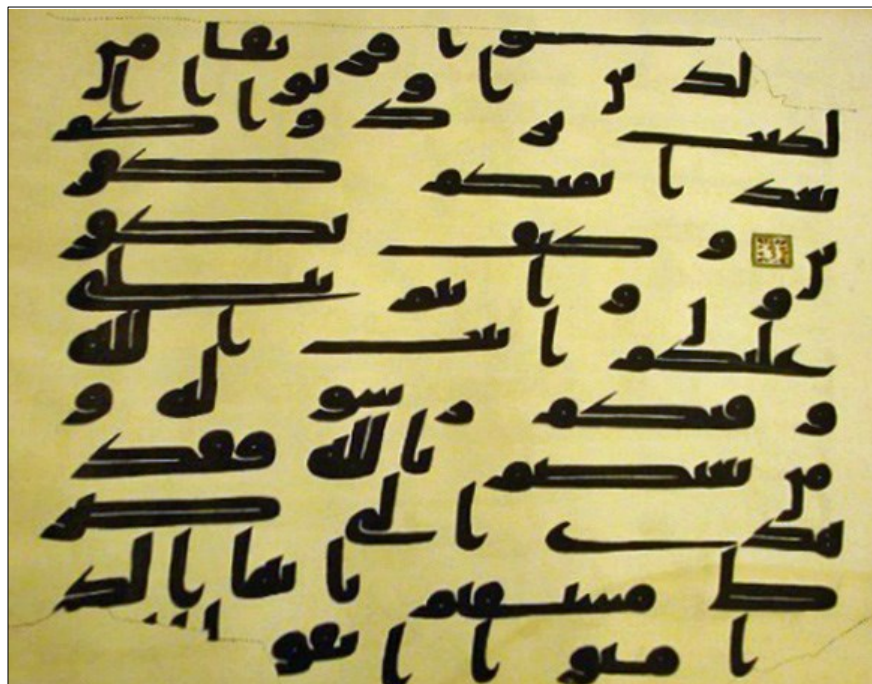 عوا فريقا من
لذين اوتوا ا
لكتب يردوكم
بعد ايمنكم كفر
ين وكيف تكفرو
ن وانتم تتلى
عليكم ايت الله
وفيكم رسوله و
من يعتصم بالله فقد
هدي الى صر
ط مستقيم يايها الذ
امنوا اتقو